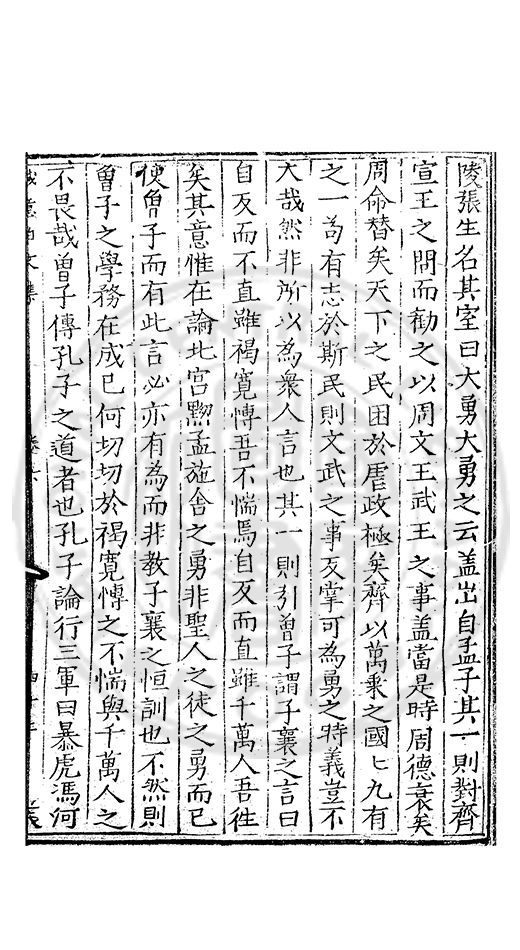 陵張生名其室曰大勇大勇之云盖出自孟子其一則對齊
宣王之問而勸之以周文王武王之事盖當是時周德衰矣
周命替矣天下之民困於虐政極矣齊以萬乘之國匕九有
之一茍有志於斯民則文武之事反掌可為勇之時義豈不
大哉然非所以為衆人言也其一則引曾子謂子襄之言曰
自反而不直雖褐寛慱吾不惴焉自反而直雖千萬人吾徃
矣其意惟在論北宫黝孟施舍之勇非聖人之徒之勇而已
使曾子而有此言必亦有為而非教子襄之恒訓也不然則
曾子之學務在成已何切切於褐寛慱之不惴與千萬人之
不畏哉曾子傳孔子之道者也孔子論行三軍曰暴虎馮河